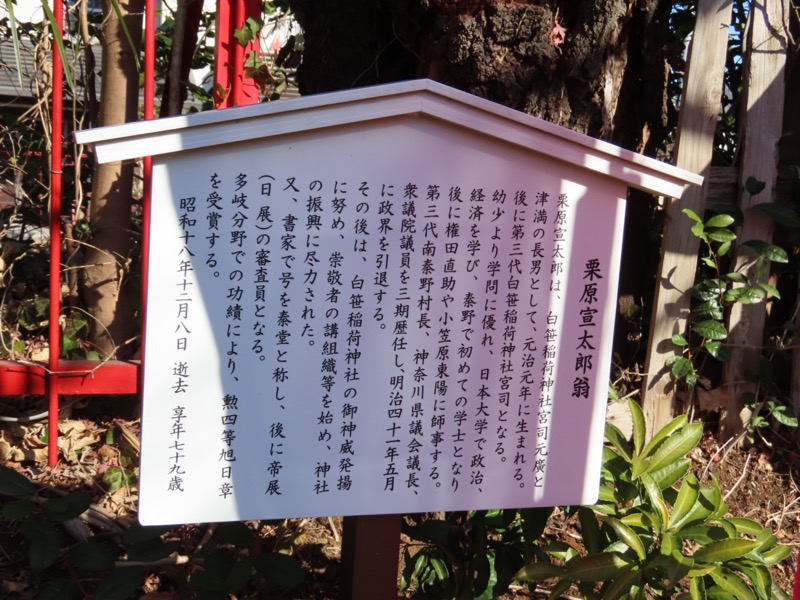 栗原宣太郎翁
栗原宣太郎は、白笹稲荷神社宮司元廣と
津満の長男として、元治元年に生まれる。
後に第三代白笹稲荷神社宮司となる。
幼少より学問に優れ、日本大学で政治、
経済を学び、秦野で初めての学士となり
後に権田直助や小笠原東陽に師事する。
第三代南秦野村長、神奈川県議会議長、
衆議院議員を三期歴任し、明治四十一年五月
に政界を引退する。
その後は、白笹稲荷神社の御神威発揚
に努め、崇敬者の講組織等を始め、神社
の振興に尽力された。
又、書家で号を秦堂と称し、後に帝展
(日展)の審査員となる。
多岐分野での功績により、勲四等旭日章
を受賞する。
昭和十八年十二月八日 逝去 享年七十九歳